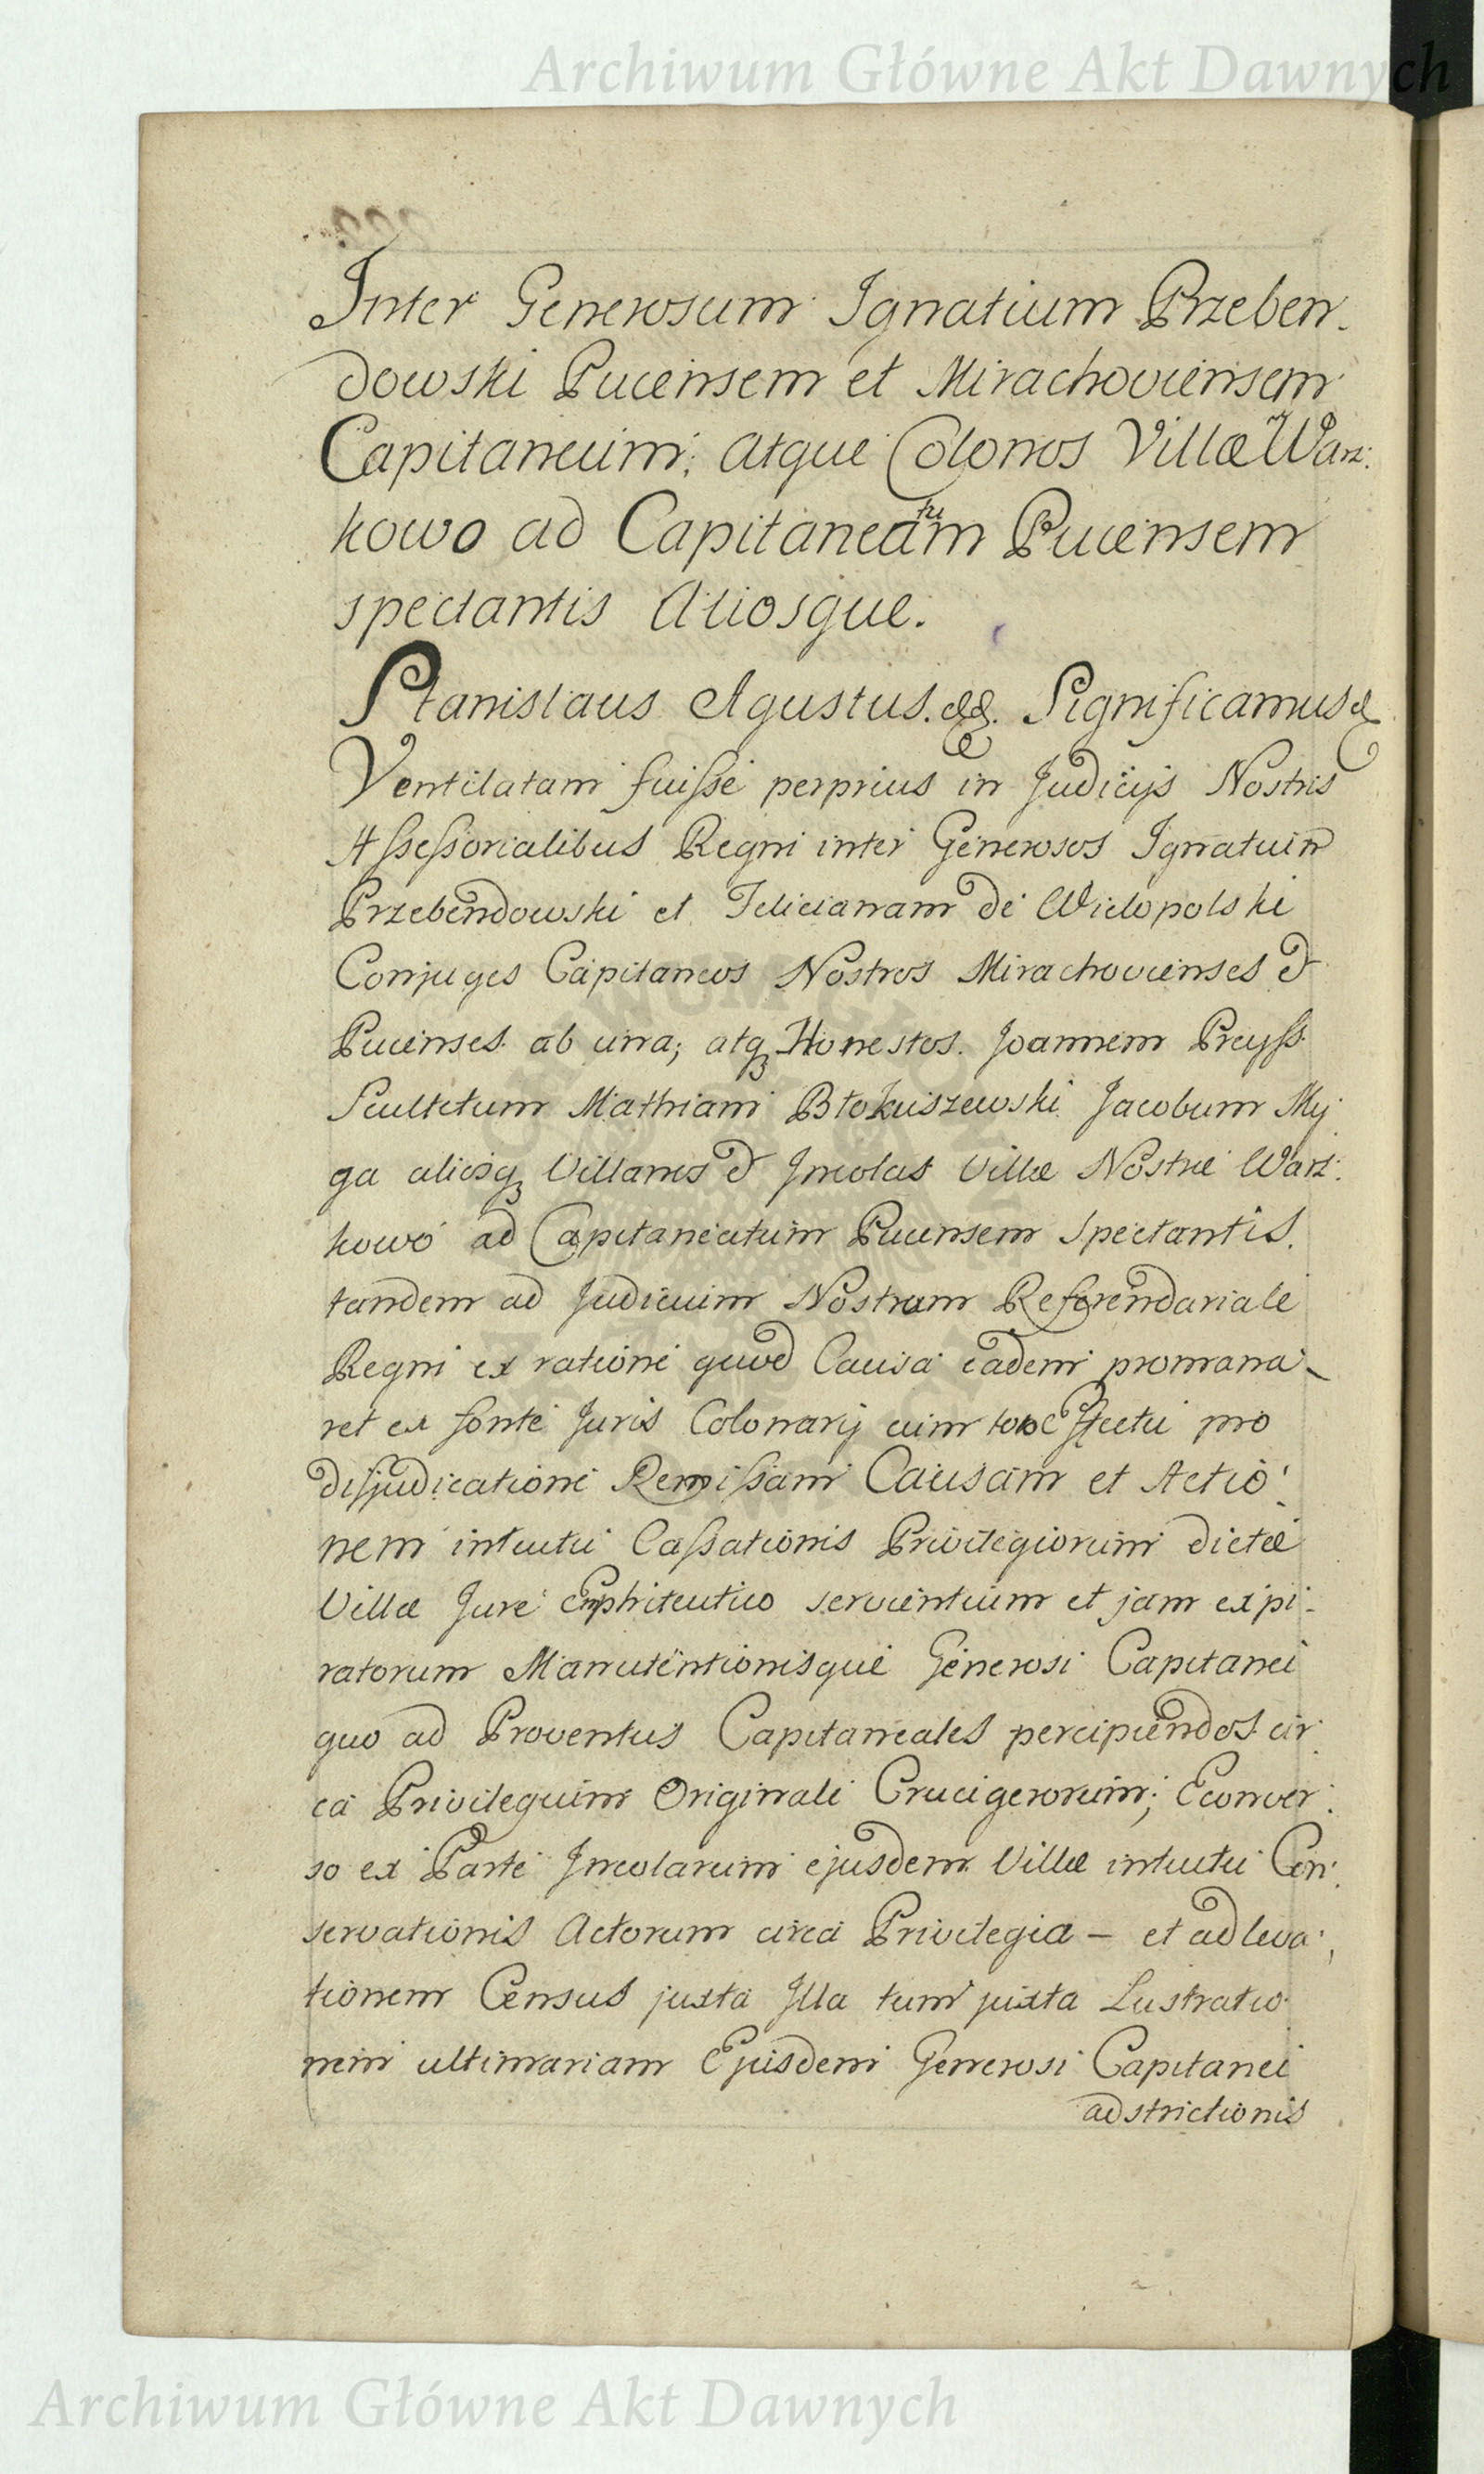 Archiwum Główne Akt Dawnych
Inter Generosum Ignatium Przeben-
dowski Pucensem et Mirachoviensem
Capitaneum; atque Colonos Villæ Warz:
kowo ad Capitaneatum Pucensem
spectantis Aliosque.
Stanislaus Agustus. &&. Significamus &
Ventilatam fuisse perprius in Judicijs Nostris
Assessorialibus Regni inter Generosos Ignatium
Przebendowski et Felicianam de Wielopolskie
Conjuges Capitaneos Nostros Mirachovienses &
Pucenses ab una; atq Honestos. Joannem Preyss
Scultetum Mathiam Jacobum My
ga aliosq Villanos & Incolas Villæ Nostræ Warz:
kowo ad Capitaneatum Pucensem Spectantis.
tandem ad Judicium Nostrum Referendariale
Regni ex ratione quod Causa eadem promana-
ret ex fonte Juris Colonarij cum toto Effectu pro
disjudicatione Remissam Causam et Actio-
nem intuitu Cassationis Privilegiorum dictæ
Villæ Jure Emphiteutico servientium et jam expi-
ratorum Manutentionisque Generosi Capitanei
quo ad Proventus Capitaneales percipiendos cir
ca Privilegium Originale Crucigerorum; Econver:
so ex Parte Incolarum ejusdem Villæ intuitu Con:
servationis Actorum circa Privilegia – et ad leva:
tionem Census juxta Illa tum juxta Lustratio-
nem ultimariam Ejusdem Generosi Capitanei
adstrictionis
Archiwum Główne Akt Dawnych